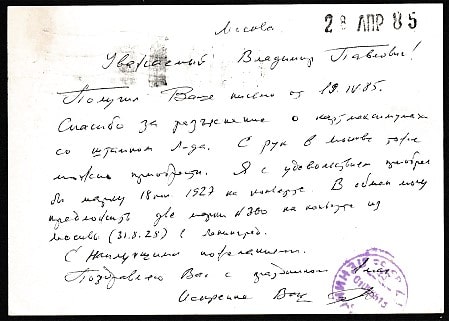 Москва
28 АПР 85
Уважаемый Владимир Павлович!
Получил Ваше письмо от 19.IV.85.
Спасибо за разъяснение о картмаксимумах
со штампом С рук в Москве тоже
можно приобрести. Я с удовольствием приобрел
бы марку 18 коп 1927 на конверте. В обмен могу
предложить две марки на конверте из
Москвы (31.8.28) в Ленинград.
С наилучшими пожеланиями.
Поздравляю Вас с праздником 1 мая
Искренне Ваш